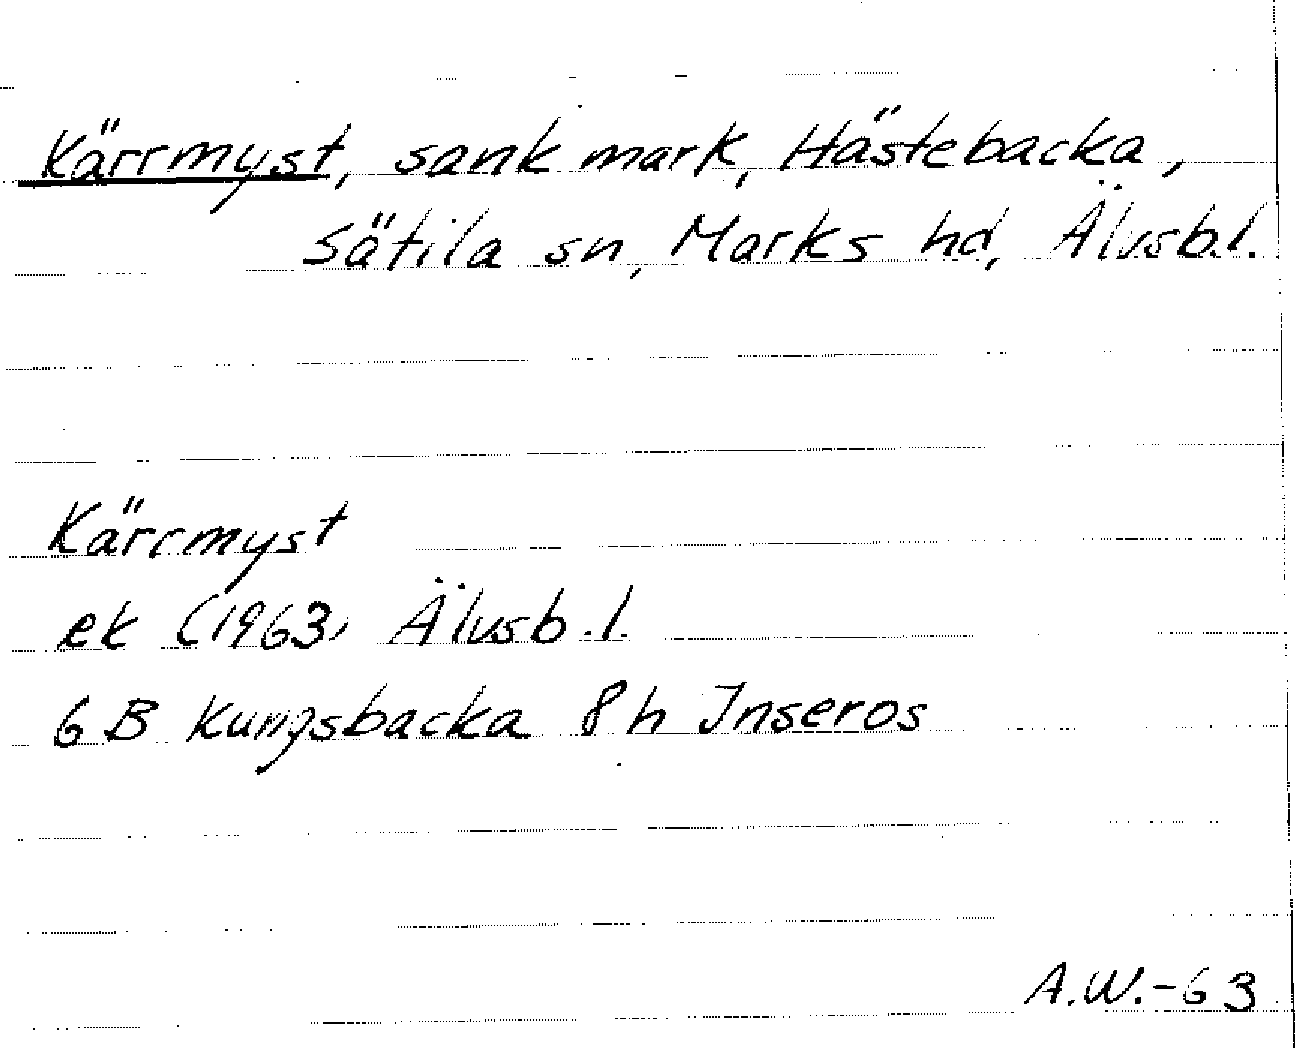 Kärrmyst, sank mark, Hästebacka,
Sätila sn, Marks hd, Älvsb.l.
Kärrmyst
ek (1963) Älvsb.l.
6 B Kungsbacka 8 h Inseros
A.W.-63